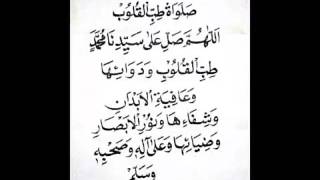 صَلَوَاةُ طِبِّ الْقُلُوْبِ
اَللّٰهُمَّ صَلِّ عَلَى سَيِّدِنَا مُحَمَّدٍ
طِبِّ الْقُلُوْبِ وَدَوَائِهَا
وَعَافِيَةِ الْاَبْدَانِ
وَشِفَاءِهَا وَنُوْرِ الْاَبْصَارِ
وَضِيَائِهَا وَعَلَى اٰلِهِ وَصَحْبِهِ
وَسَلِّمْ